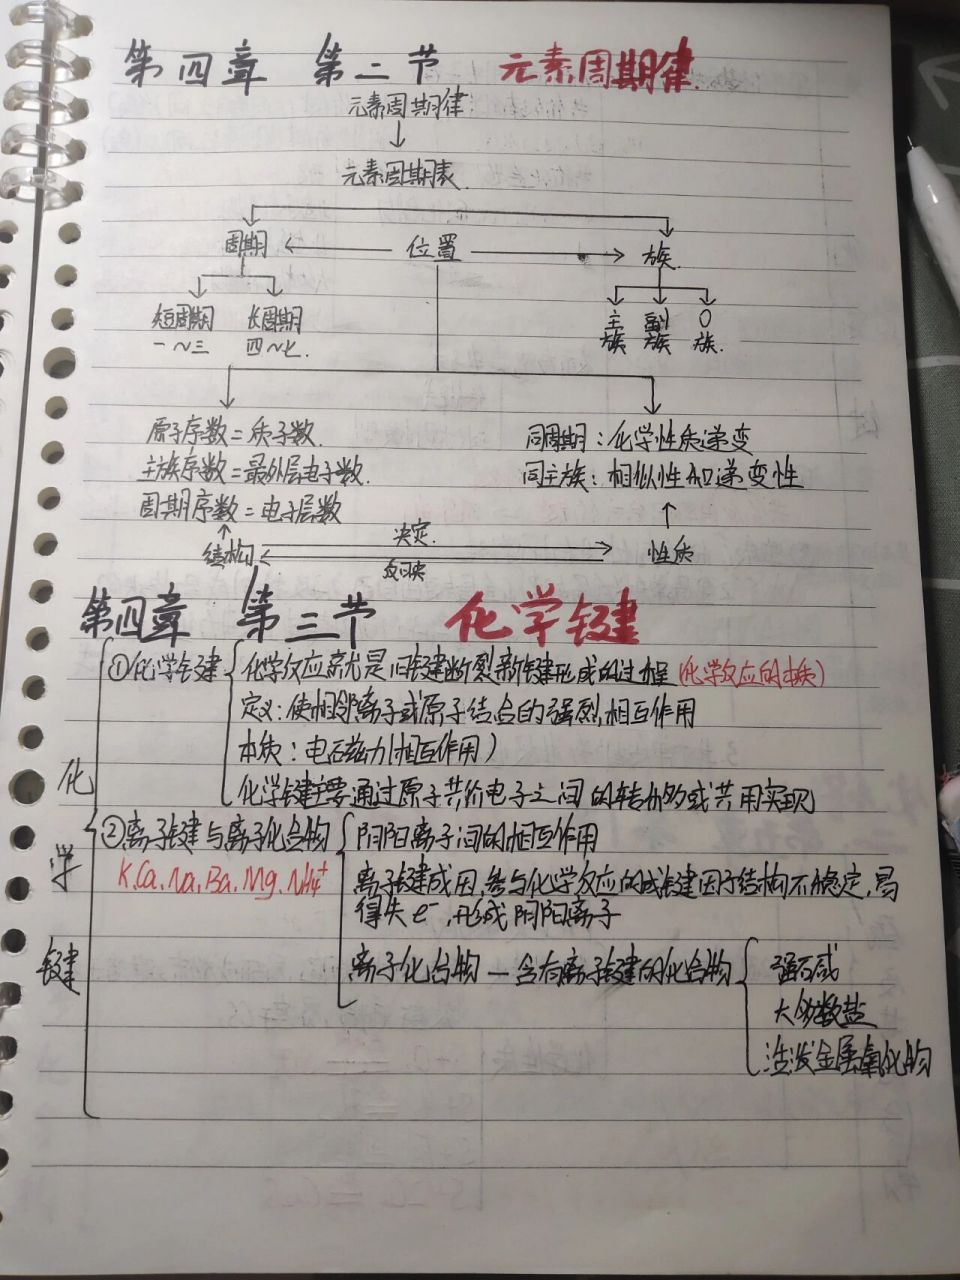 第四章 第二节 元素周期律.
元素周期律
↓
元素周期表
周期 ← 位置 → 族
短周期 长周期 主族 副族 0族.
一~三 四~七.
原子序数=质子数. 同周期:化学性质递变
主族序数=最外层电子数. 同主族:相似性和递变性
周期序数=电子层数
决定.
结构 性质
反映
第四章 第三节 化学键
化学键
①化学键 化学反应就是旧键断裂新键形成的过程(化学反应的本质)
定义:使相邻离子或原子结合的强烈相互作用
本质:电磁力(相互作用)
化学键主要通过原子共价电子之间的转移或共用实现
②离子键与离子化合物 阴阳离子间的相互作用
K.Ca.Na.Ba.Mg.NH4+ 离子键成因,参与化学反应的成键因子结构不稳定,易
得失e-,形成阴阳离子
离子化合物—含有离子键的化合物 强碱
大多数盐
活泼金属氧化物